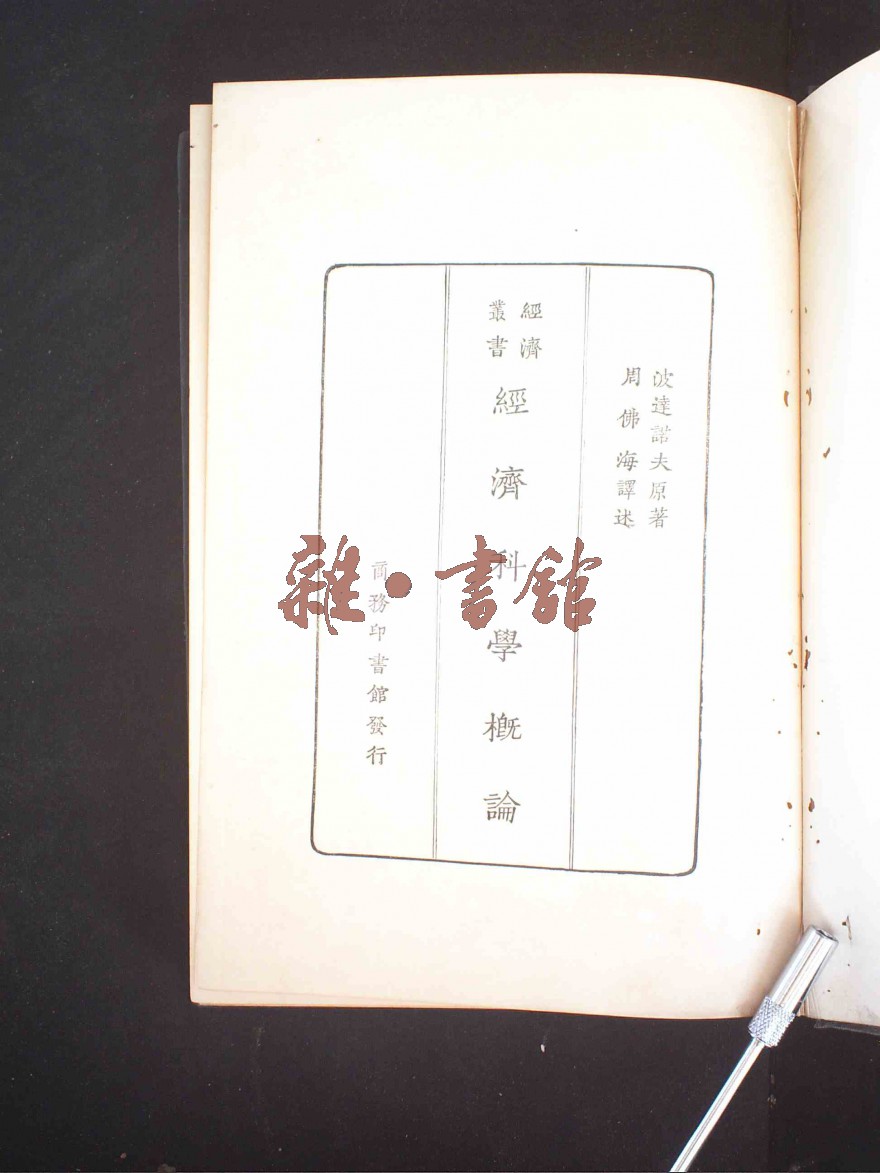 波達諾夫原著
周佛海譯述
經濟
叢書
經濟科學概論
商務印書館發行
雜·書館